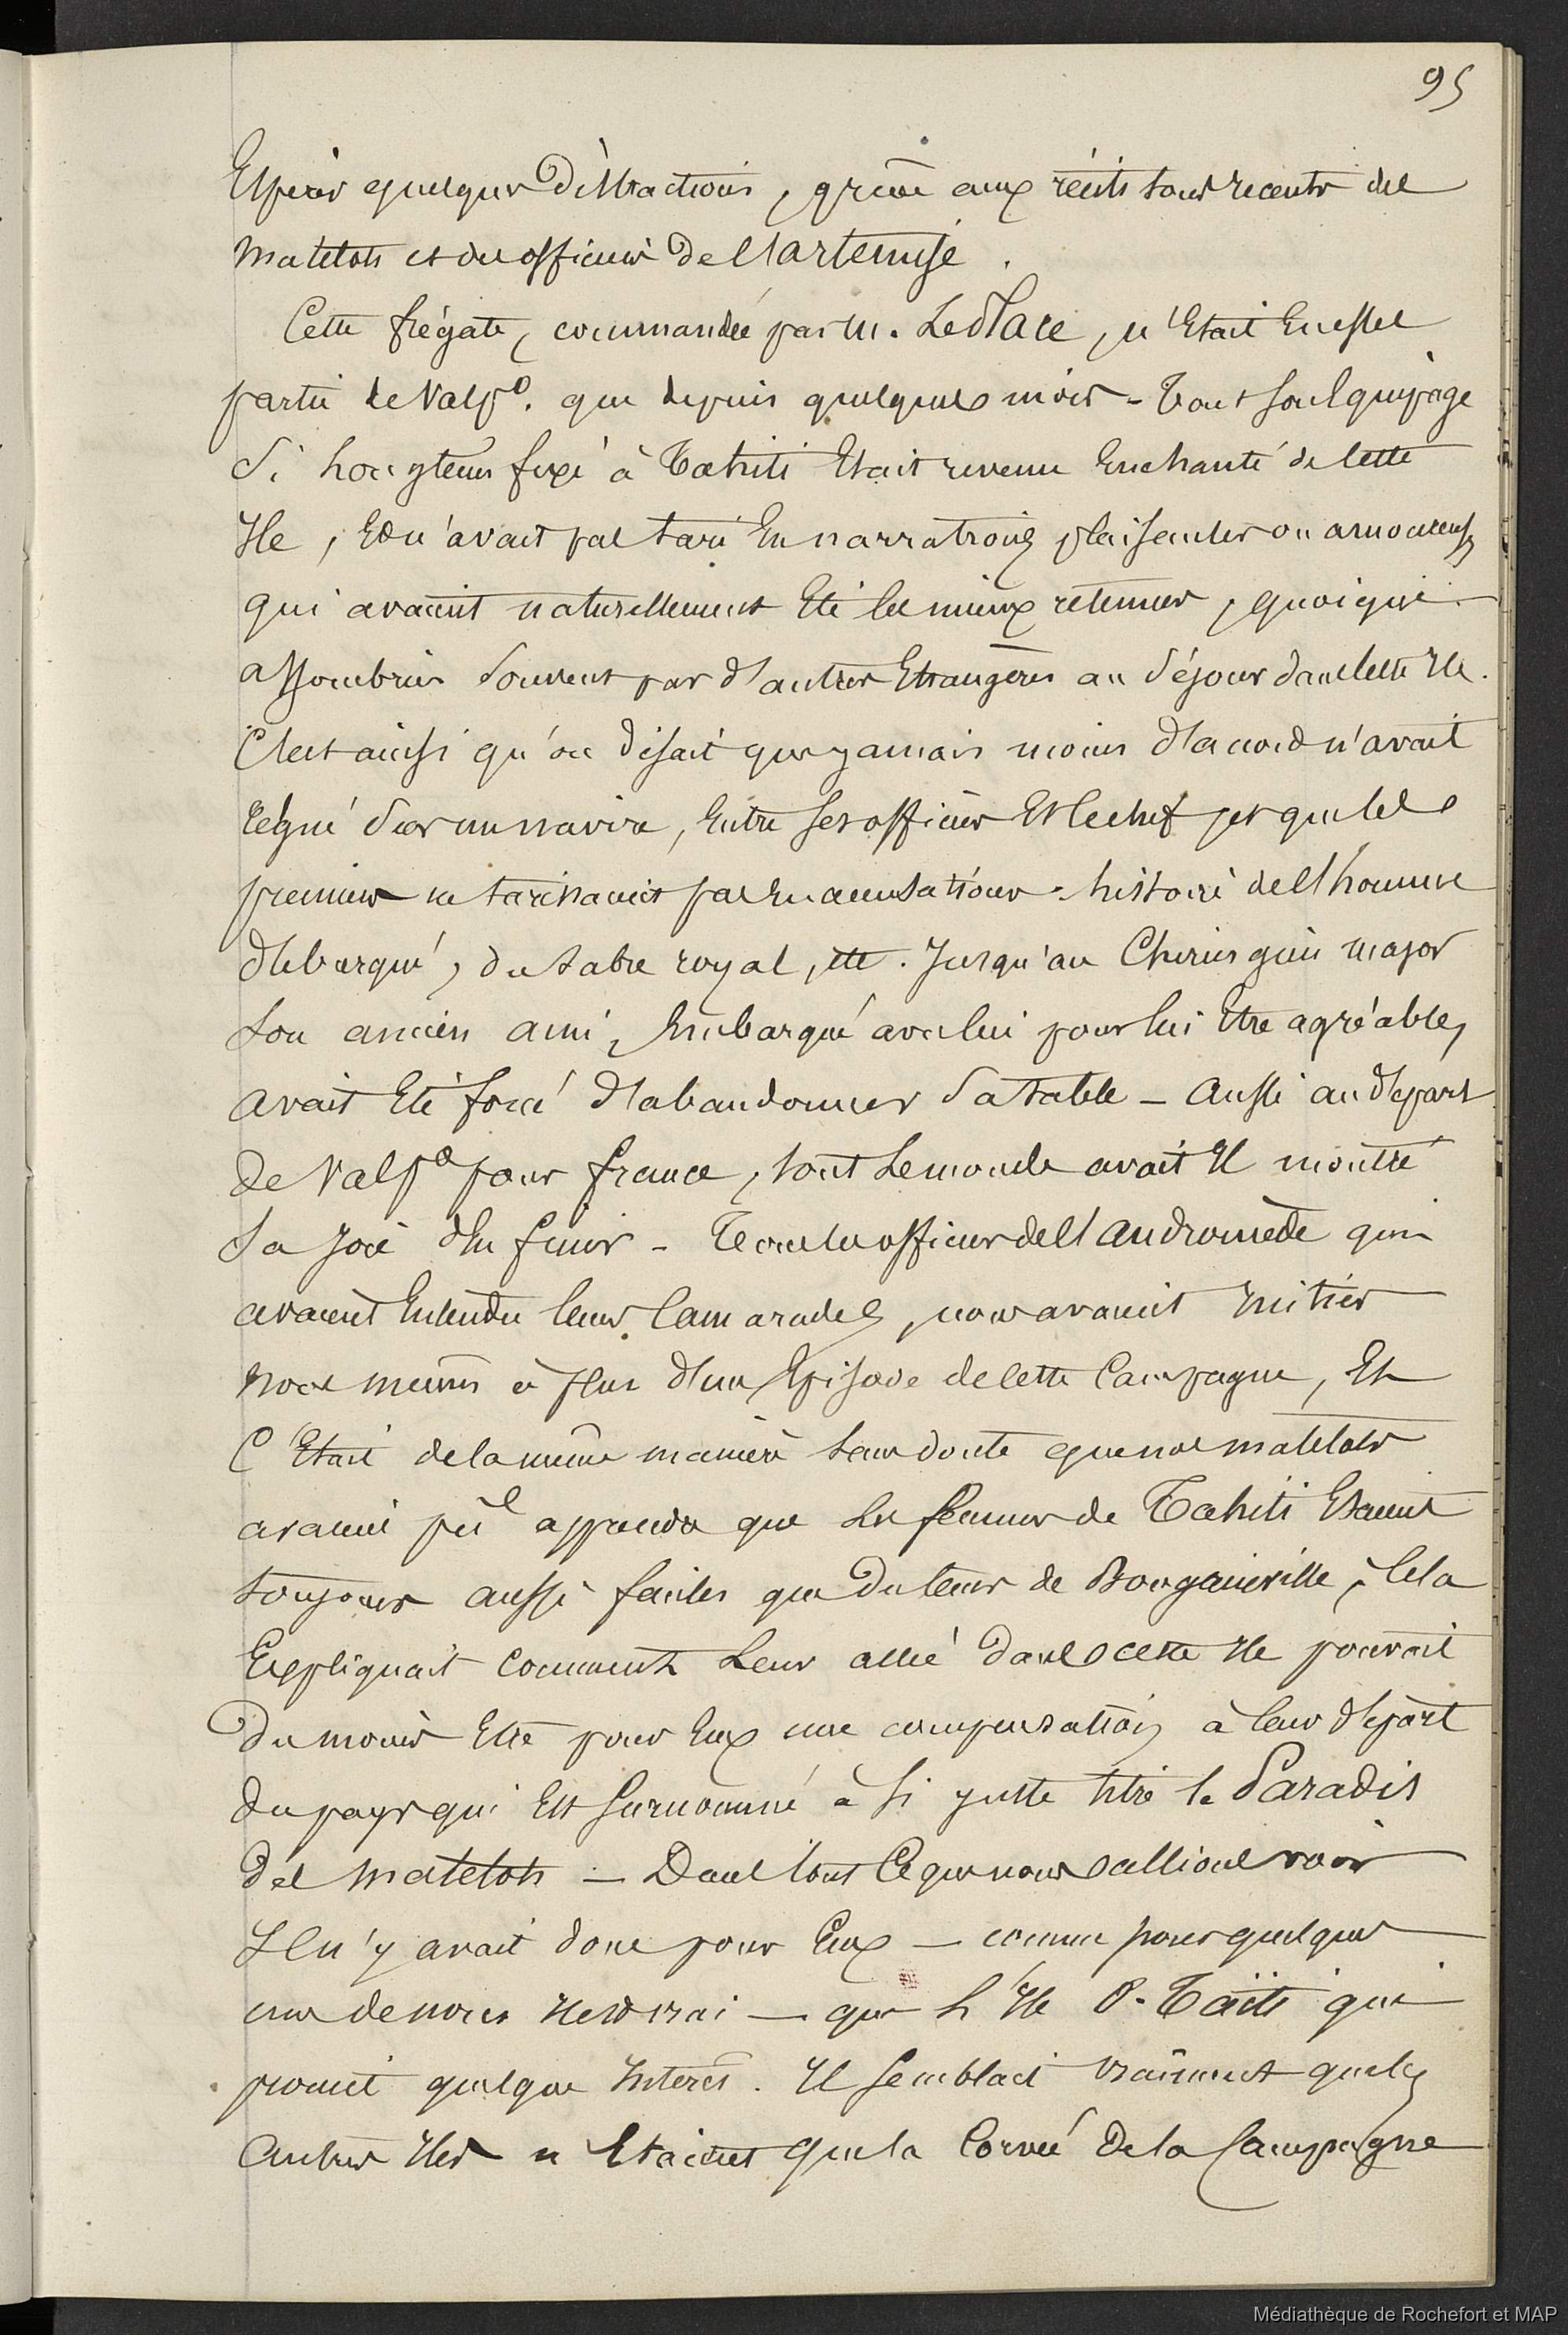 95
Espérer quelques distractions, grâce aux récits tous récents des
matelots et des officiers de l'artemise.
Cette frégate, commandée par M. Laplace, n'était en effet
partie de Valp°. que depuis quelques mois - Tout son équipage
si longtems fixé à Tahiti Etait revenu Enchanté de cette
Ile, Et n'avait pas tari En narrations plaisantes ou amoureuses
qui avaient naturellement Eté les mieux retenues, quoique
assombries souvent par d'autres Etrangères au séjour dans cette Ile.
C'est ainsi qu'on disait que jamais moins d'accord n'avait
régné sur un navire, Entre ses officiers Et le chef, et que les
premiers ne tarissaient pas En accusations - histoire de l'homme
débarqué, du sabre royal, etc. Jusqu'au Chirurgien major
son ancien ami, Embarqué avec lui pour lui Etre agréable,
avait Eté forcé d'abandonner sa table - Aussi au départ
de Valp° pour france, tout le monde avait Il montré
sa joie d'En finir - Tous les officiers de l'Andromède qui
avaient Entendu leurs Camarades, nous avaient Initiés
nous mêmes à plus d'un Episode de cette Campagne, Et
C'Etait de la même manière sans doute que nos matelots
avaient pu apprendre que les femmes de Tahiti Etaient
toujours aussi faciles que du tems de Bougainville, Cela
Expliquait comment Leur dans cette Ile pouvait
du moins Etre pour Eux une compensation à leur départ
du pays qui Est surnommé à si juste titre le Paradis
des matelots - Dans tout Ce que nous allions voir
Il n'y avait donc pour Eux - comme pour quelques
uns de nous Il est vrai - que L'Ile O-Taïti qui
promit quelque Intérêt. Il semblait vraiment que les
Autres Iles n'Etaient que la Corvée de la Campagne
Médiathèque de Rochefort et MAP